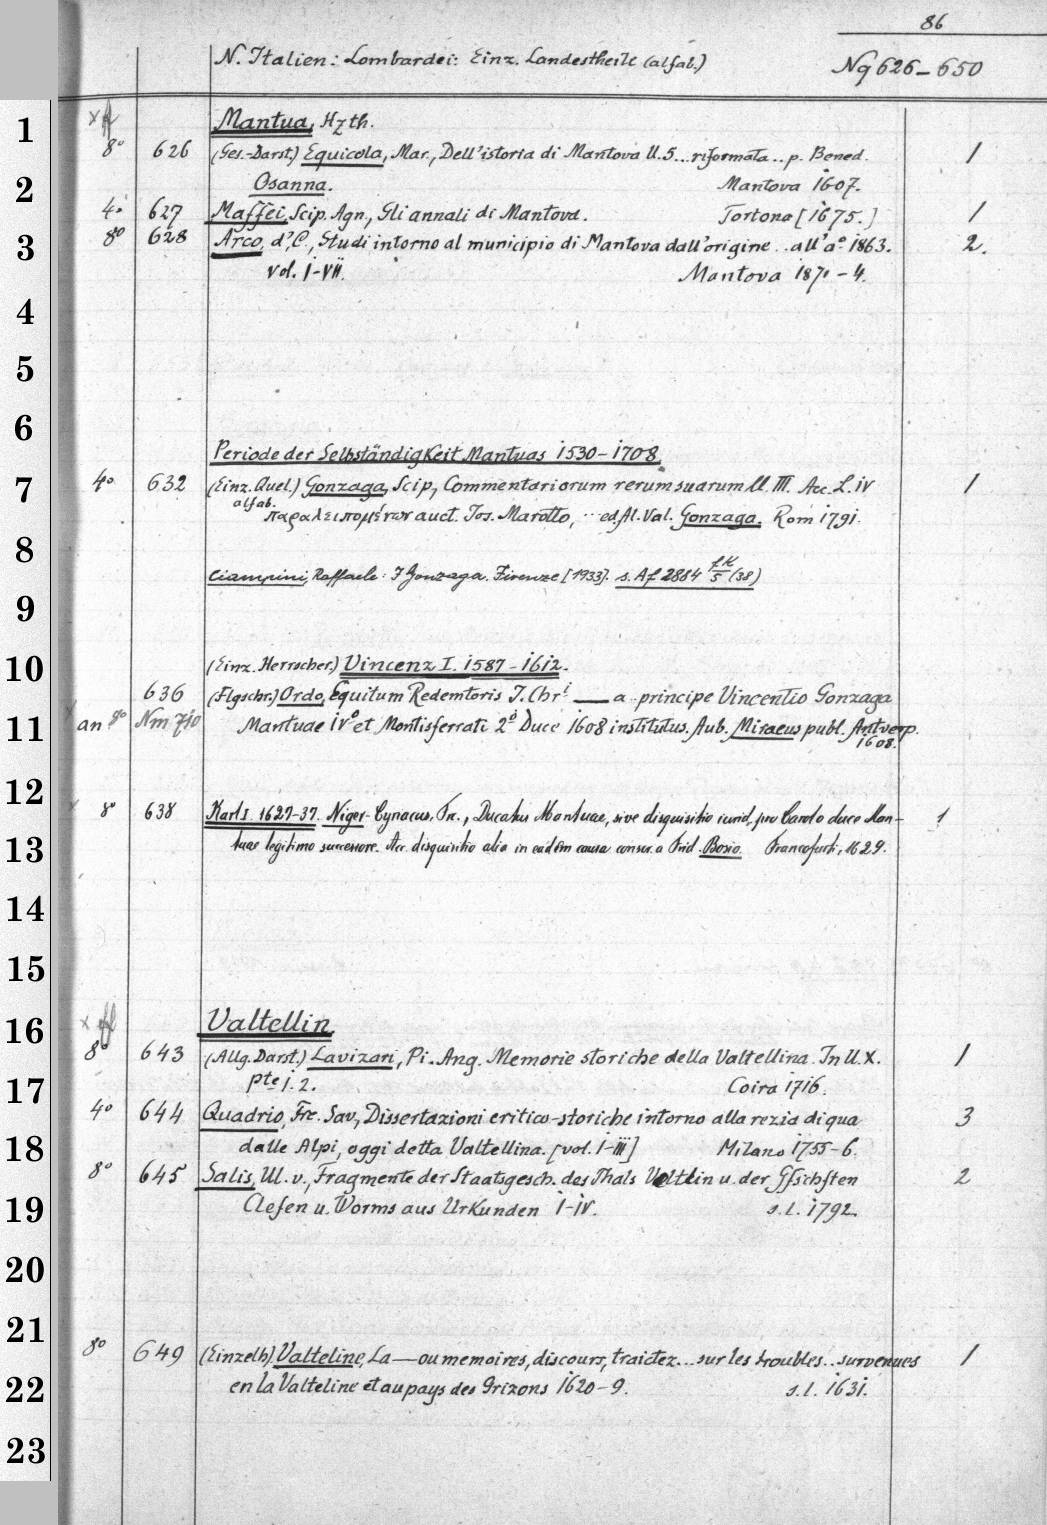 86
N. Italien: Lombardei: Einz. Landestheile (alfab.) Nq 626-650
1 Mantua, Hzth.
8° 626 (Ges.-Darst.) Equicola, Mar., Dell'istoria di Mantova ll. 5... riformata.. p. Bened. 1
2 Osanna. Mantova 1607.
4° 627 Maffei, Scip. Agn., Gli annali di Mantova. Tortona [1675.] 1
3 8° 628 Arco, d', C., Studi intorno al municipio di Mantova dall'origine .. all'a° 1863. 2.
vol. I-VII. Mantova 1871-4.
4
5
6
Periode der Selbständigkeit Mantuas 1530-1708.
7 4° 632 (Einz. Quel.) Gonzaga, Scip., Commentariorum rerum suarum ll. III. Acc. L. IV 1
alfab.
παραλειπομένων auct. Jos. Marotto, ... ed. Al. Val. Gonzaga. Rom 1791.
8
Ciampini, Raffaele: I Gonzaga. Firenze [1933]. s. Af 2884 fK/5 (38)
9
10 (Einz. Herrscher.) Vincenz I. 1587-1612.
636 (Flgschr.) Ordo, Equitum Redemtoris J. Chri — a .. principe Vincentio Gonzaga
11 an 8° Nm 710 Mantuae IV° et Montisferrati 2° Duce 1608 institutus. Aub. Miraeus publ. Antverp.
1608.
12
8° 638 Karl I. 1627-37. Niger Cyriacus, Fr., Ducatus Mantuae, sive disquisitio iurid. pro Carolo duce Man- 1
13 tuae legitimo successore. Acc. disquisitio alia in eadem causa conscr. a Frid. Bosio. Francofurti, 1629.
14
15
16 Valtellin
8° 643 (Allg. Darst.) Lavizari, Pi. Ang. Memorie storiche della Valtellina. In ll. X. 1
17 pte 1. 2. Coira 1716.
4° 644 Quadrio, Frc. Sav., Dissertazioni critico-storiche intorno alla rezia di qua 3
18 dalle Alpi, oggi detta Valtellina. [vol. I-III] Milano 1755-6.
8° 645 Salis, Ul. v., Fragmente der Staatsgesch. des Thals Veltlin u. der Gfschften 2
19 Clefen u. Worms aus Urkunden I-IV. s. l. 1792
20
21
8° 649 (Einzelh) Valteline, La — ou memoires, discours, traictez... sur les troubles.. survenues 1
22 en la Valteline et au pays des Grizons 1620-9. s. l. 1631.
23